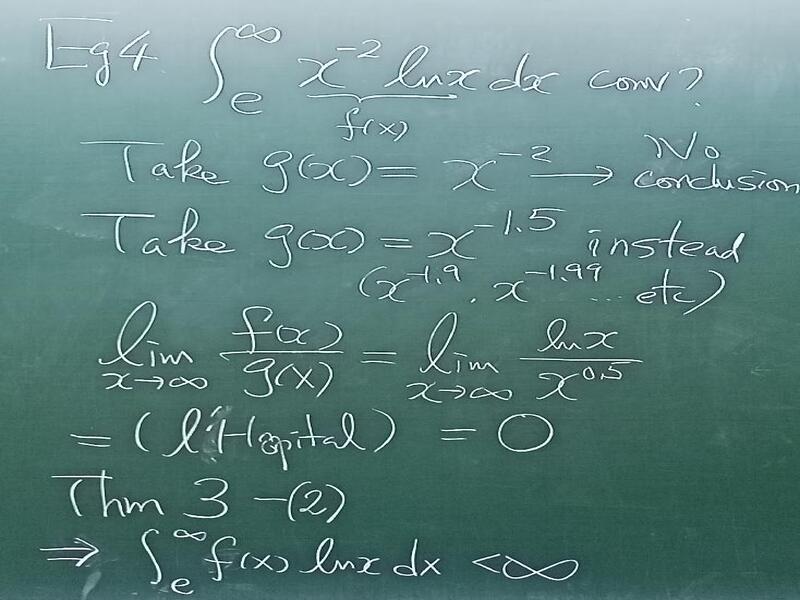 Eg4 ∫_e^∞ x^{-2} ln x dx conv?
f(x)
Take g(x) = x^{-2} → No conclusion
Take g(x) = x^{-1.5} instead
(x^{-1.9}, x^{-1.99} ... etc)
lim_{x→∞} f(x)/g(x) = lim_{x→∞} ln x / x^{0.5}
= (l'Hopital) = 0
Thm 3 -(2)
⇒ ∫_e^∞ f(x) ln x dx < ∞